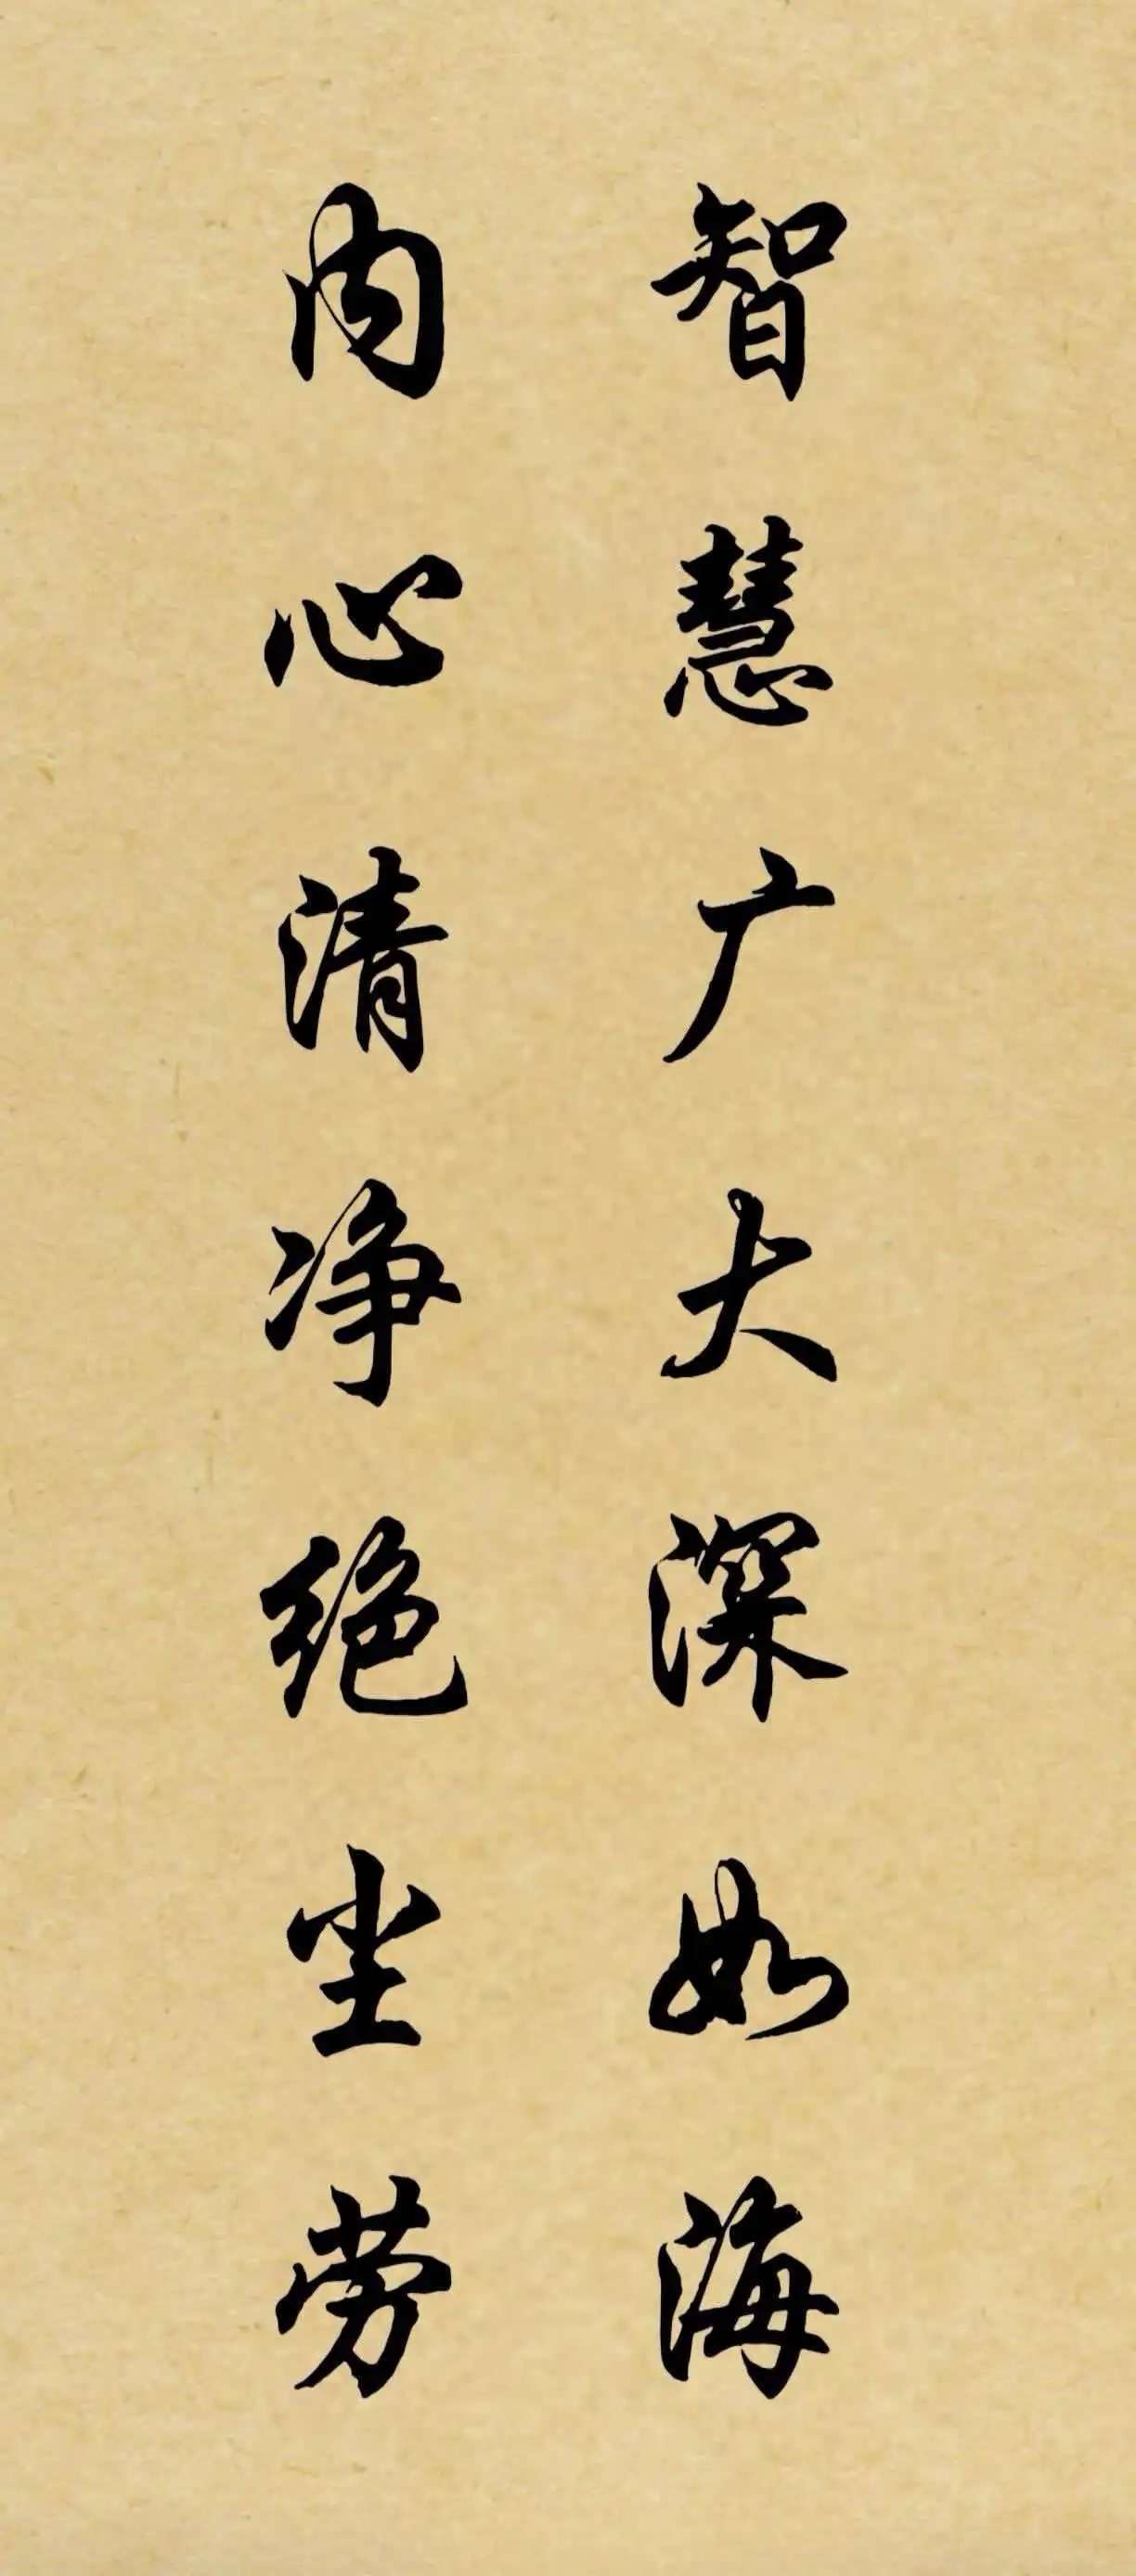 智慧广大深如海
内心清净绝尘劳